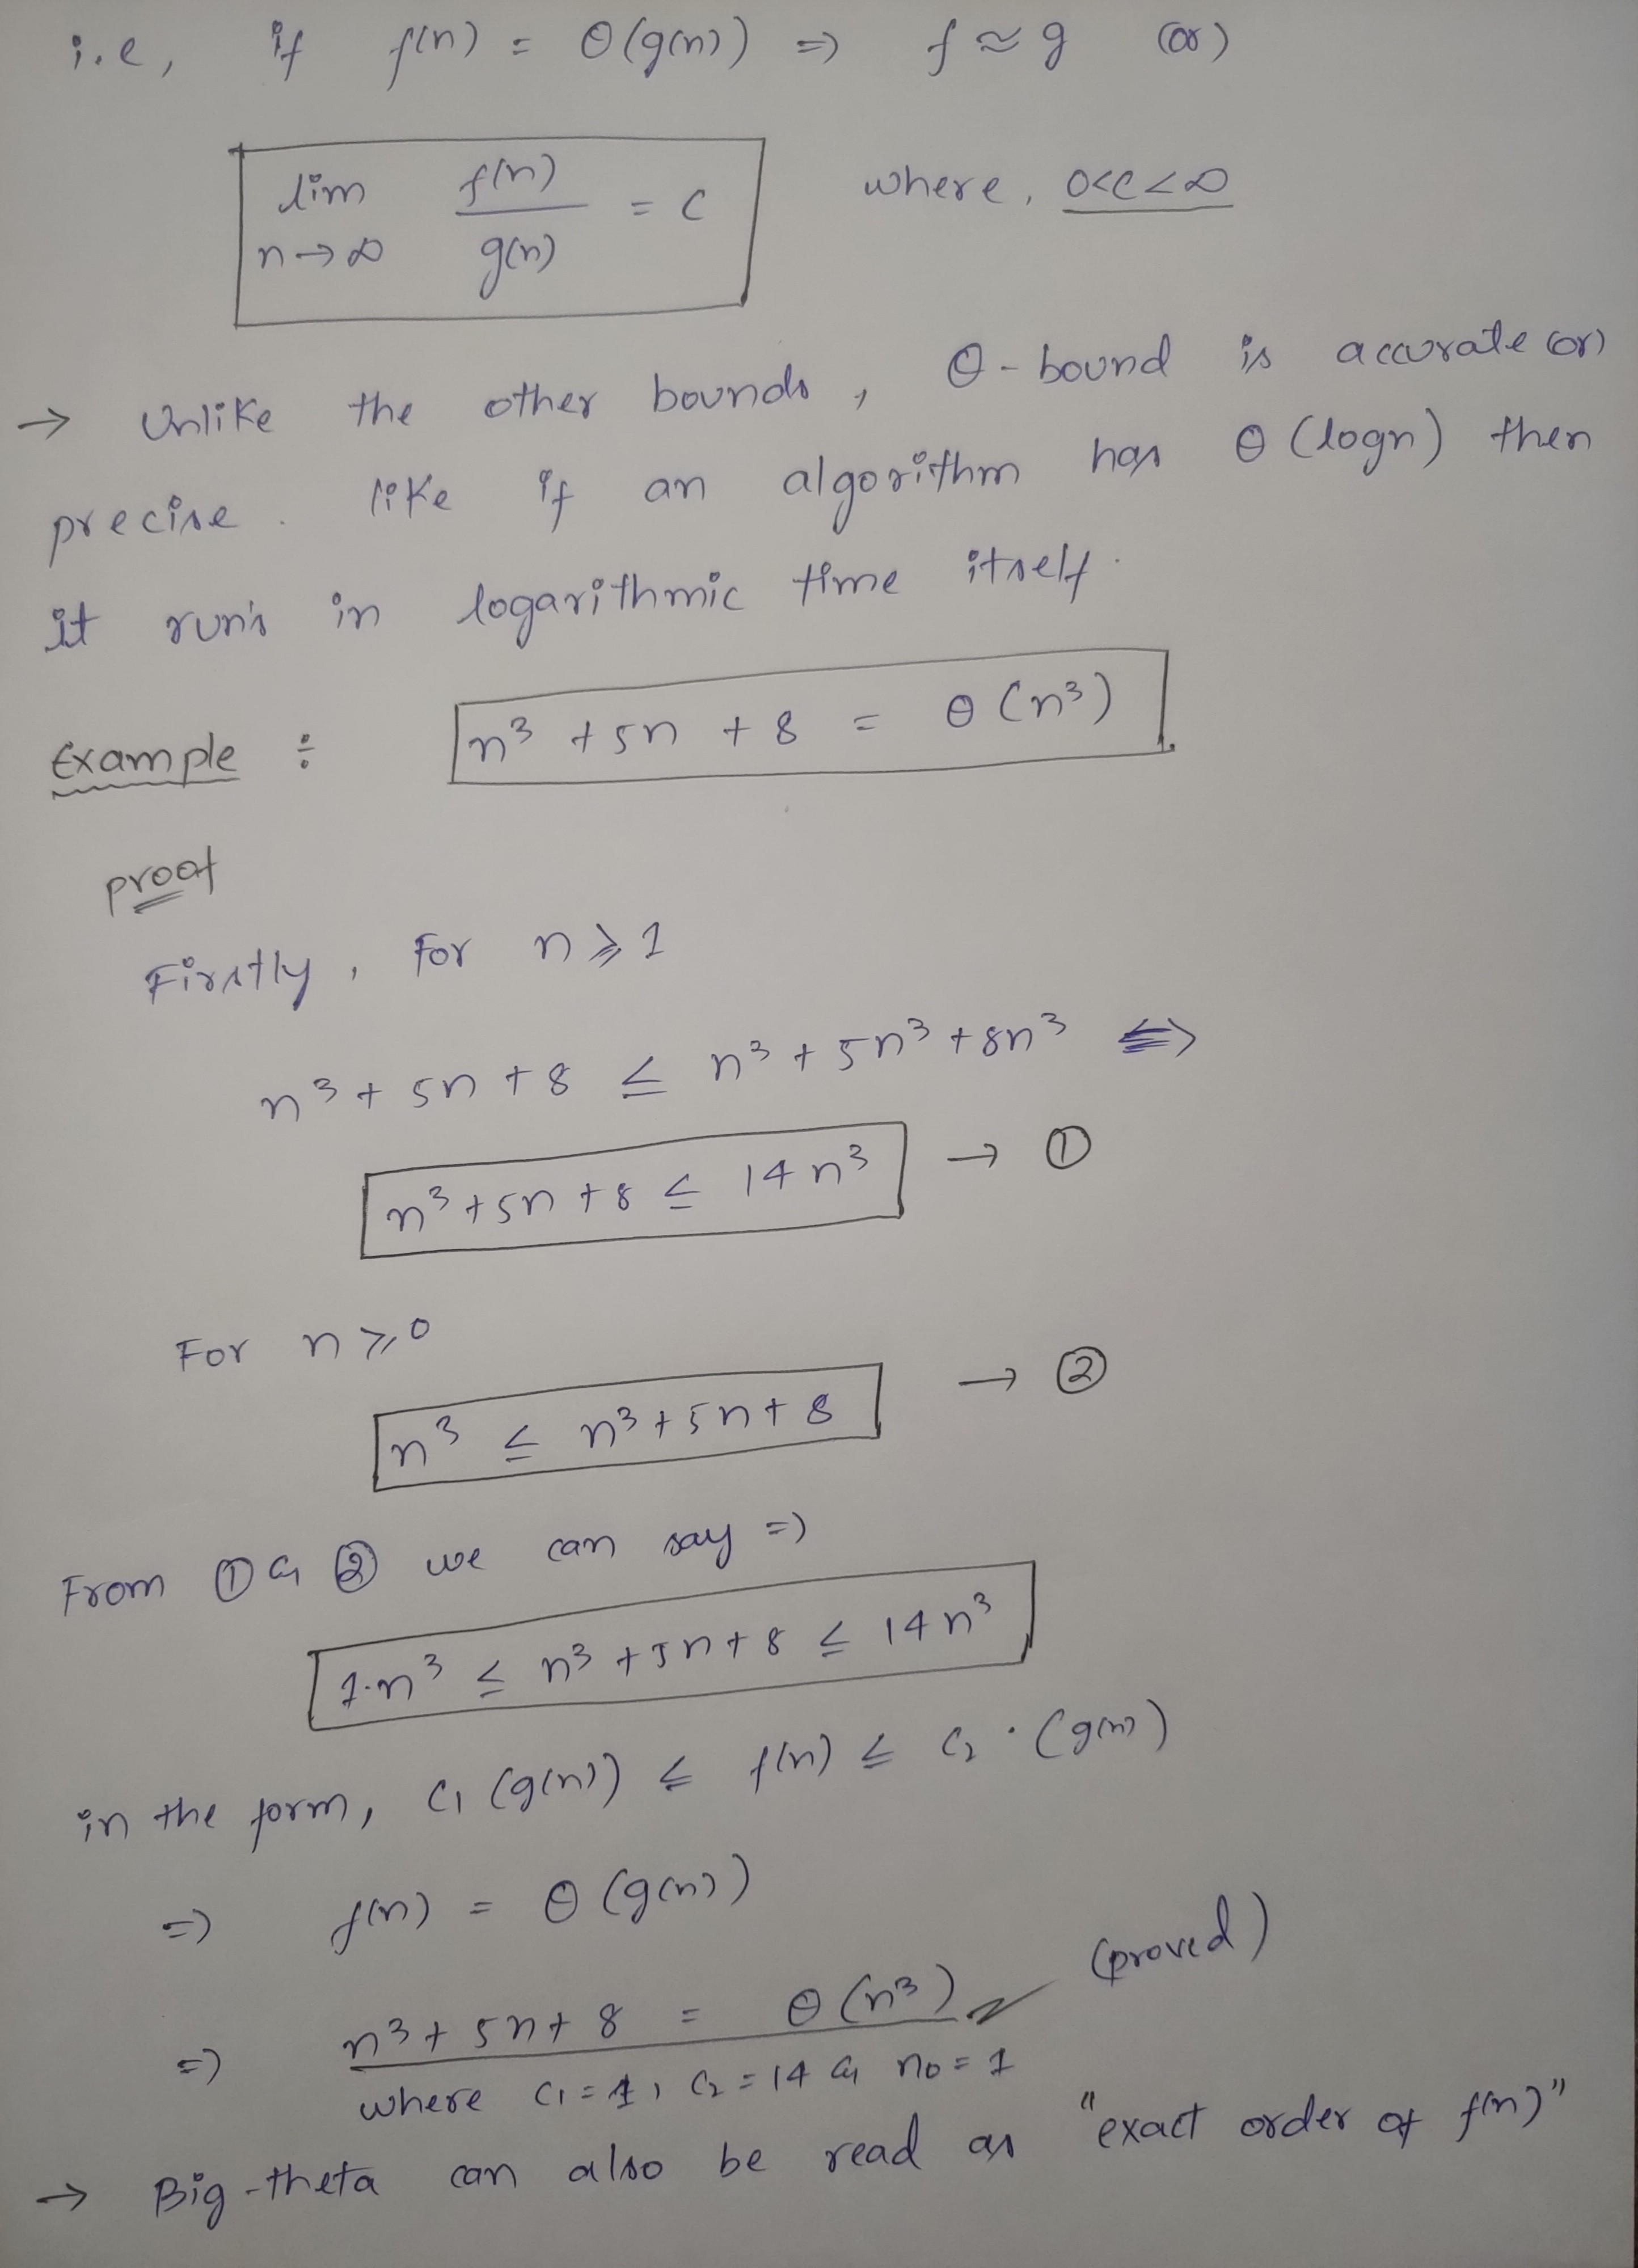 i.e, if f(n) = Θ(g(n)) => f ≈ g (or)
lim n→∞ f(n)/g(n) = c where, 0<c<∞
→ Unlike the other bounds, Θ-bound is accurate (or)
precise. like if an algorithm has Θ(logn) then
it run's in logarithmic time itself.
Example : n³ + 5n + 8 = Θ(n³)
proof
Firstly, For n ≥ 1
n³ + 5n + 8 ≤ n³ + 5n³ + 8n³ <=>
n³ + 5n + 8 ≤ 14n³ → ①
For n ≥ 0
n³ ≤ n³ + 5n + 8 → ②
From ① & ② we can say =>
1·n³ ≤ n³ + 5n + 8 ≤ 14n³
in the form, c₁(g(n)) ≤ f(n) ≤ c₂·(g(n))
=> f(n) = Θ(g(n))
=> n³ + 5n + 8 = Θ(n³) (proved)
where c₁ = 1, c₂ = 14 & n₀ = 1
→ Big-theta can also be read as "exact order of f(n)"